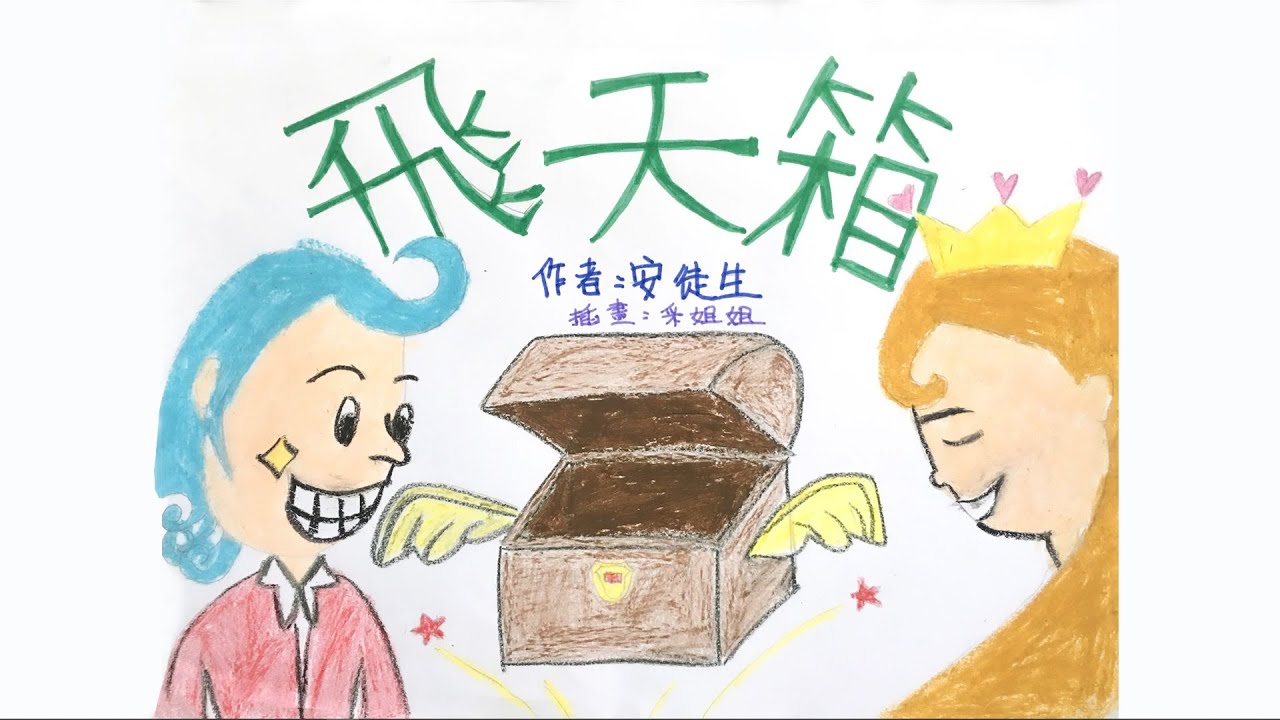 飛天箱
作者:安徒生
插畫:采姐姐